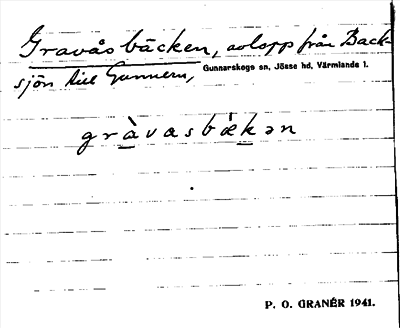 Gravåsbäcken, avlopp från Back-
sjön till Gunnern, Gunnarskogs sn, Jösse hd, Värmlands l.
gràvasbǽkən
P. O. GRANÉR 1941.